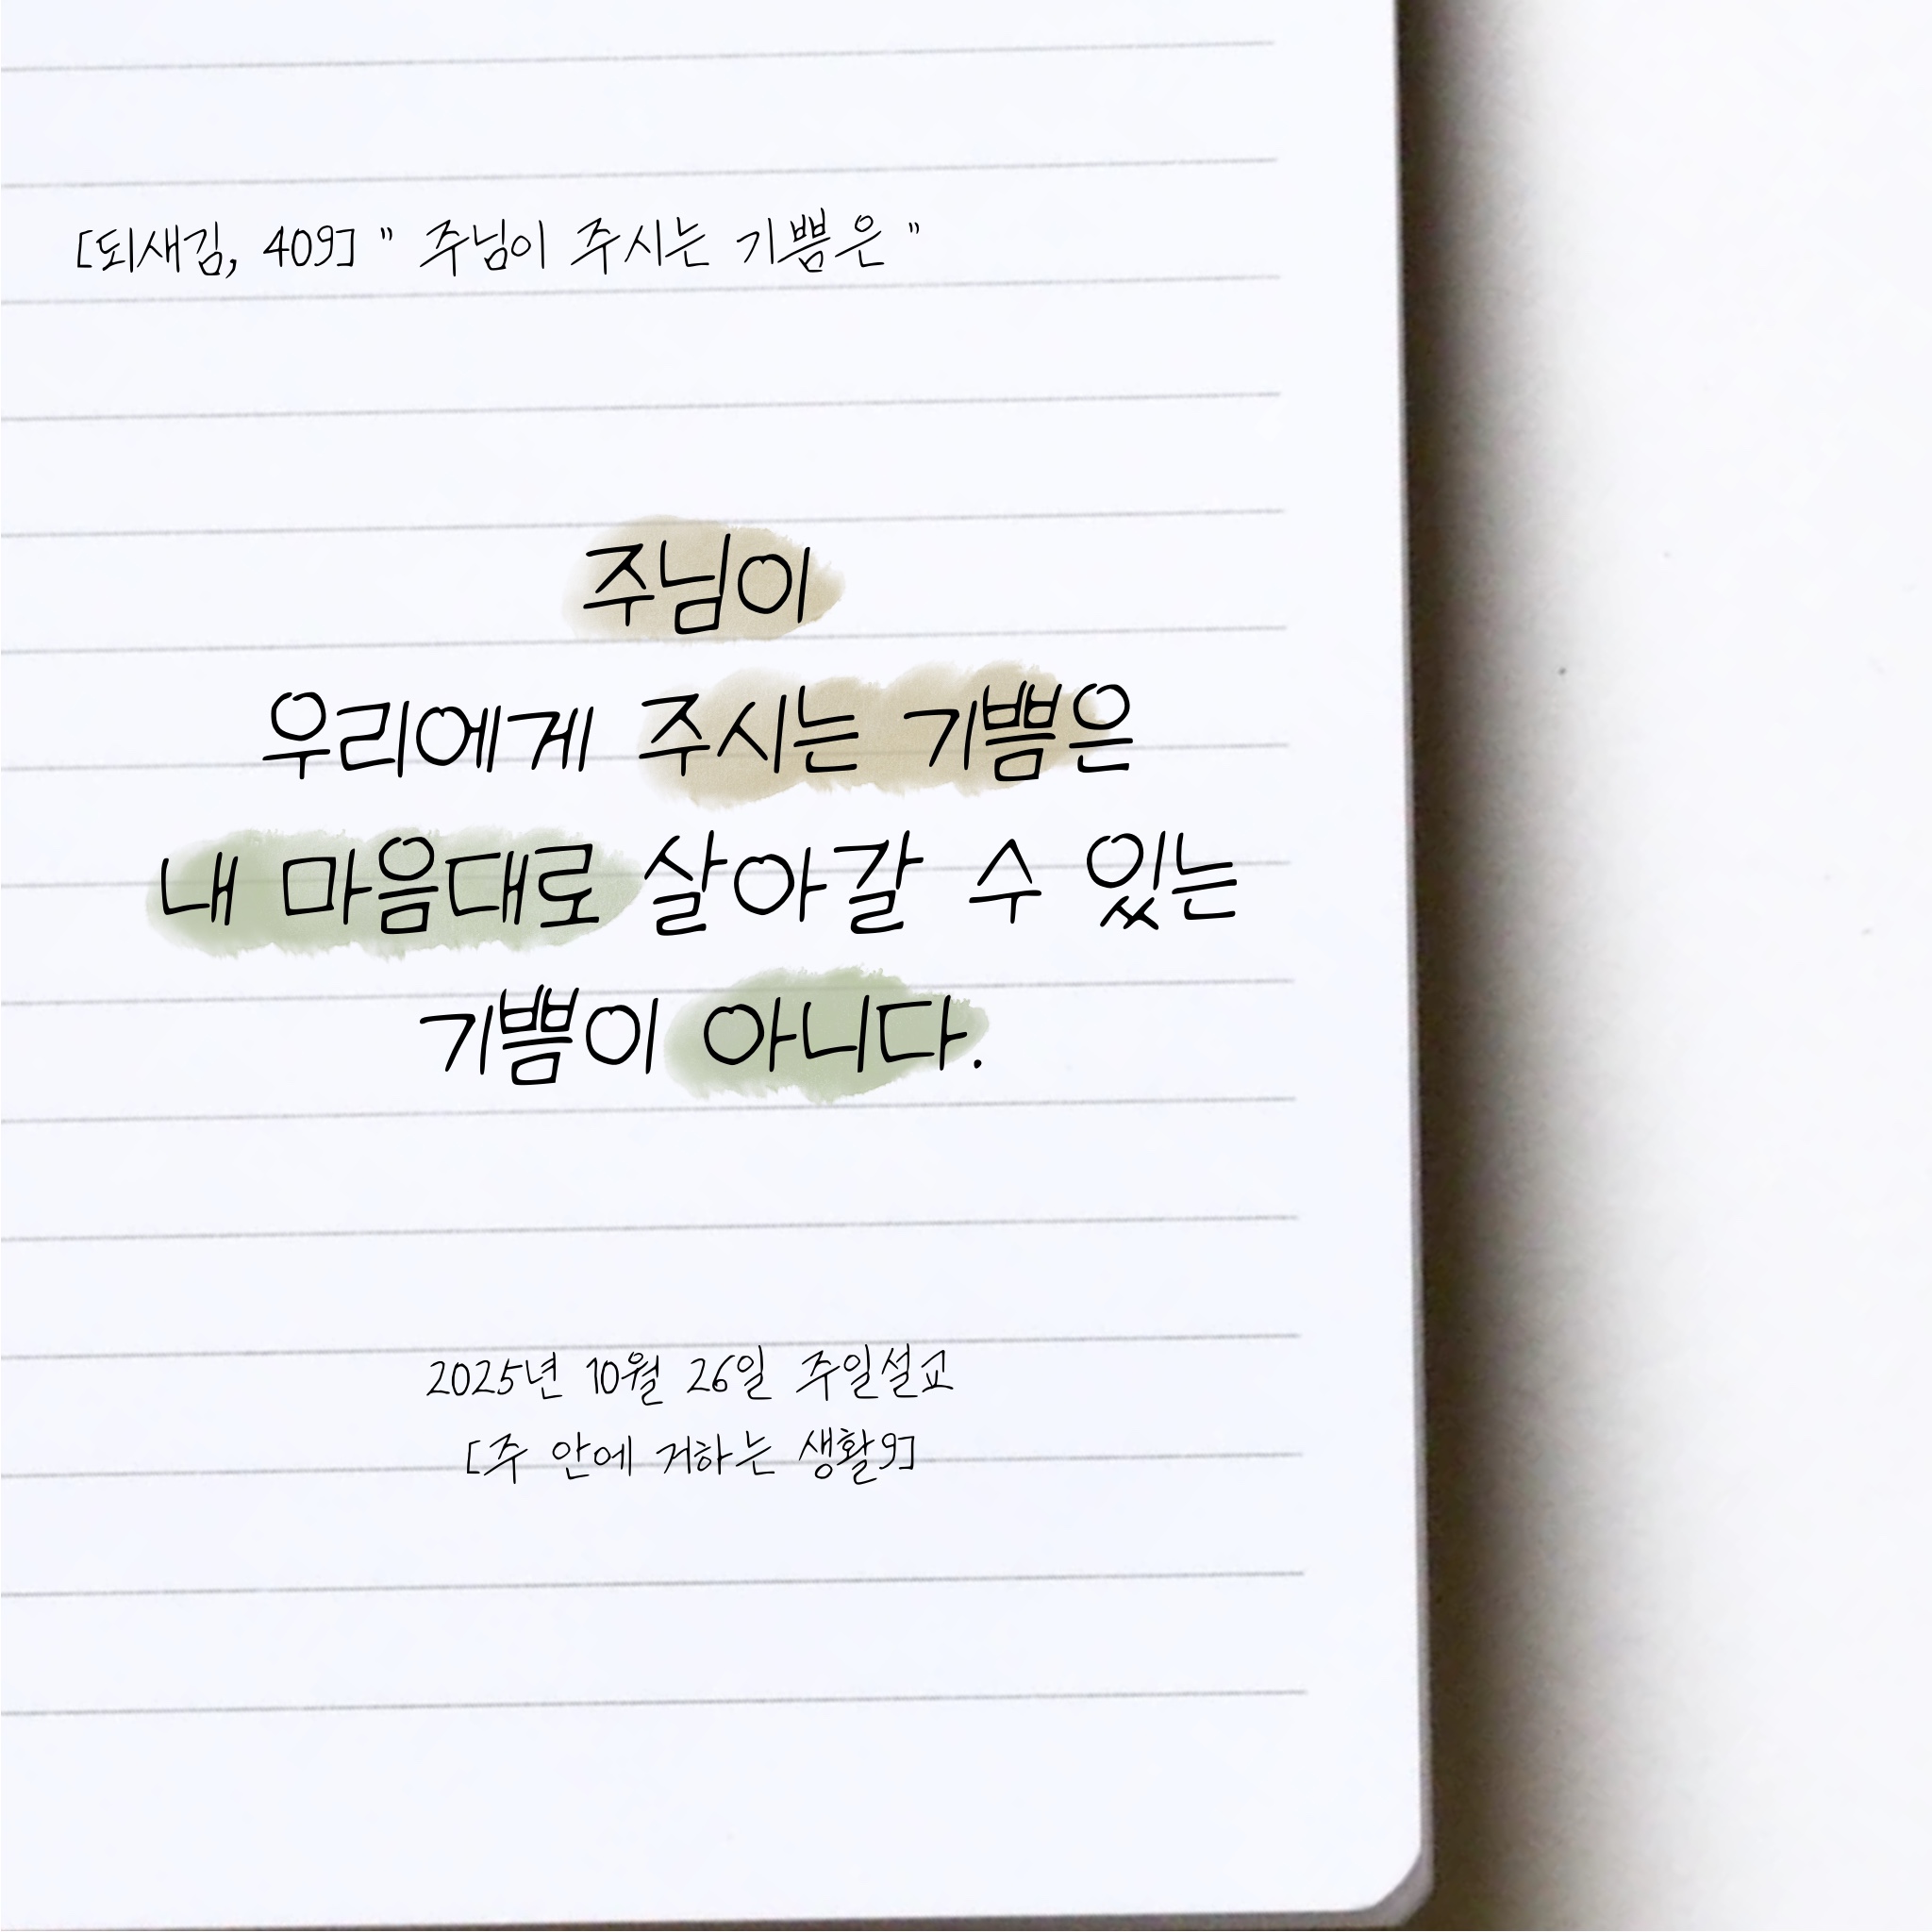 [되새김, 409] " 주님이 주시는 기쁨은 "
주님이
우리에게 주시는 기쁨은
내 마음대로 살아갈 수 있는
기쁨이 아니다.
2025년 10월 26일 주일설교
[주 안에 거하는 생활9]